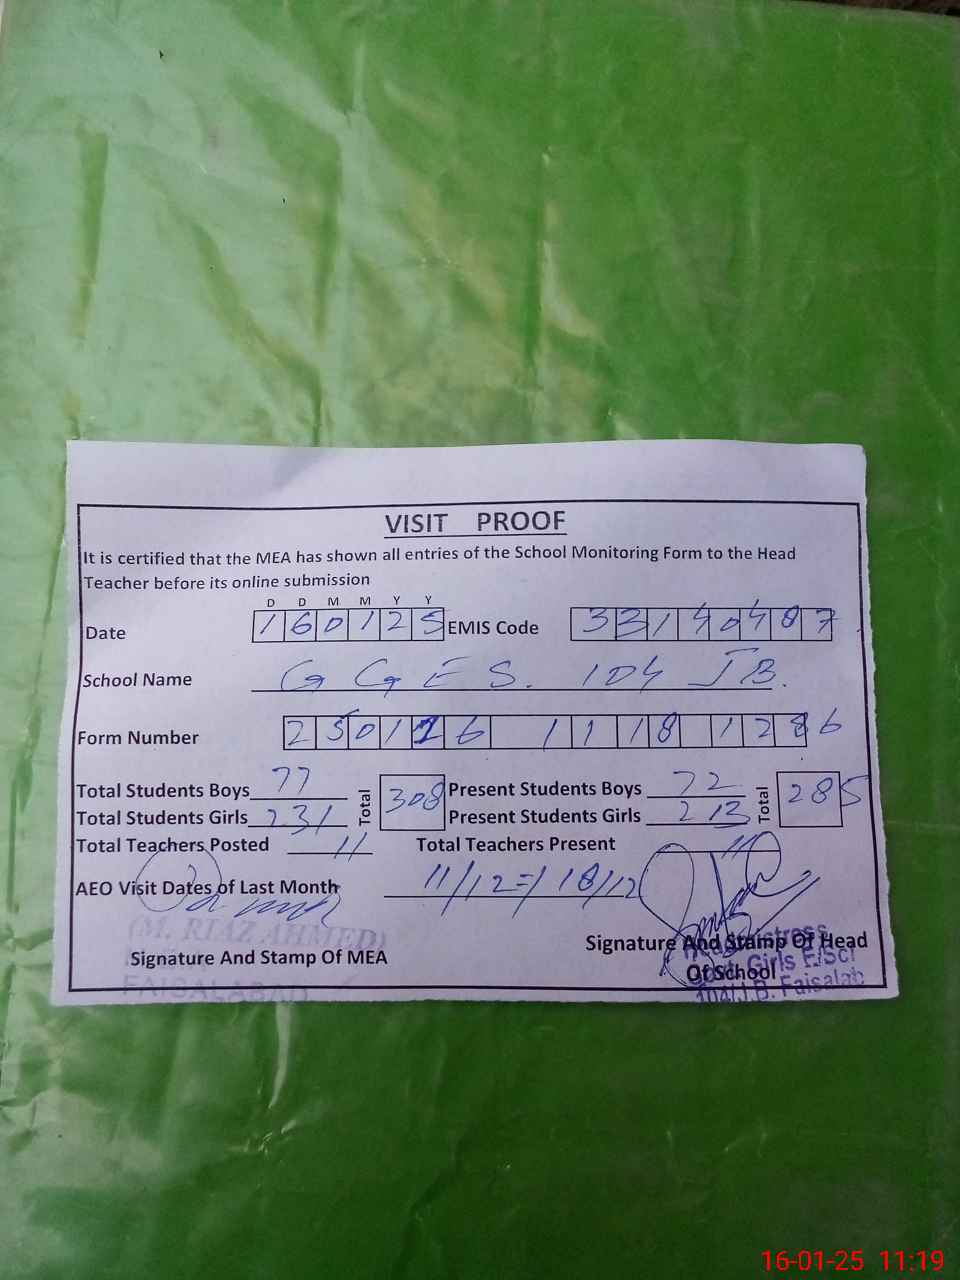 VISIT PROOF
It is certified that the MEA has shown all entries of the School Monitoring Form to the Head
Teacher before its online submission
D D M M Y Y
Date 160125 EMIS Code 33140487
School Name GGES. 104 JB.
Form Number 250116 1118 1286
Total Students Boys 77 Total 308 Present Students Boys 72 Total 285
Total Students Girls 231 Present Students Girls 213
Total Teachers Posted 11 Total Teachers Present 11
AEO Visit Dates of Last Month 11/12 18/12
(M. RIAZ AHMED)
Signature And Stamp Of MEA
FAISALABAD
Signature And Stamp Of Head
Of School
Headmistress
Govt. Girls E/Scl
104/J.B. Faisalab
16-01-25 11:19